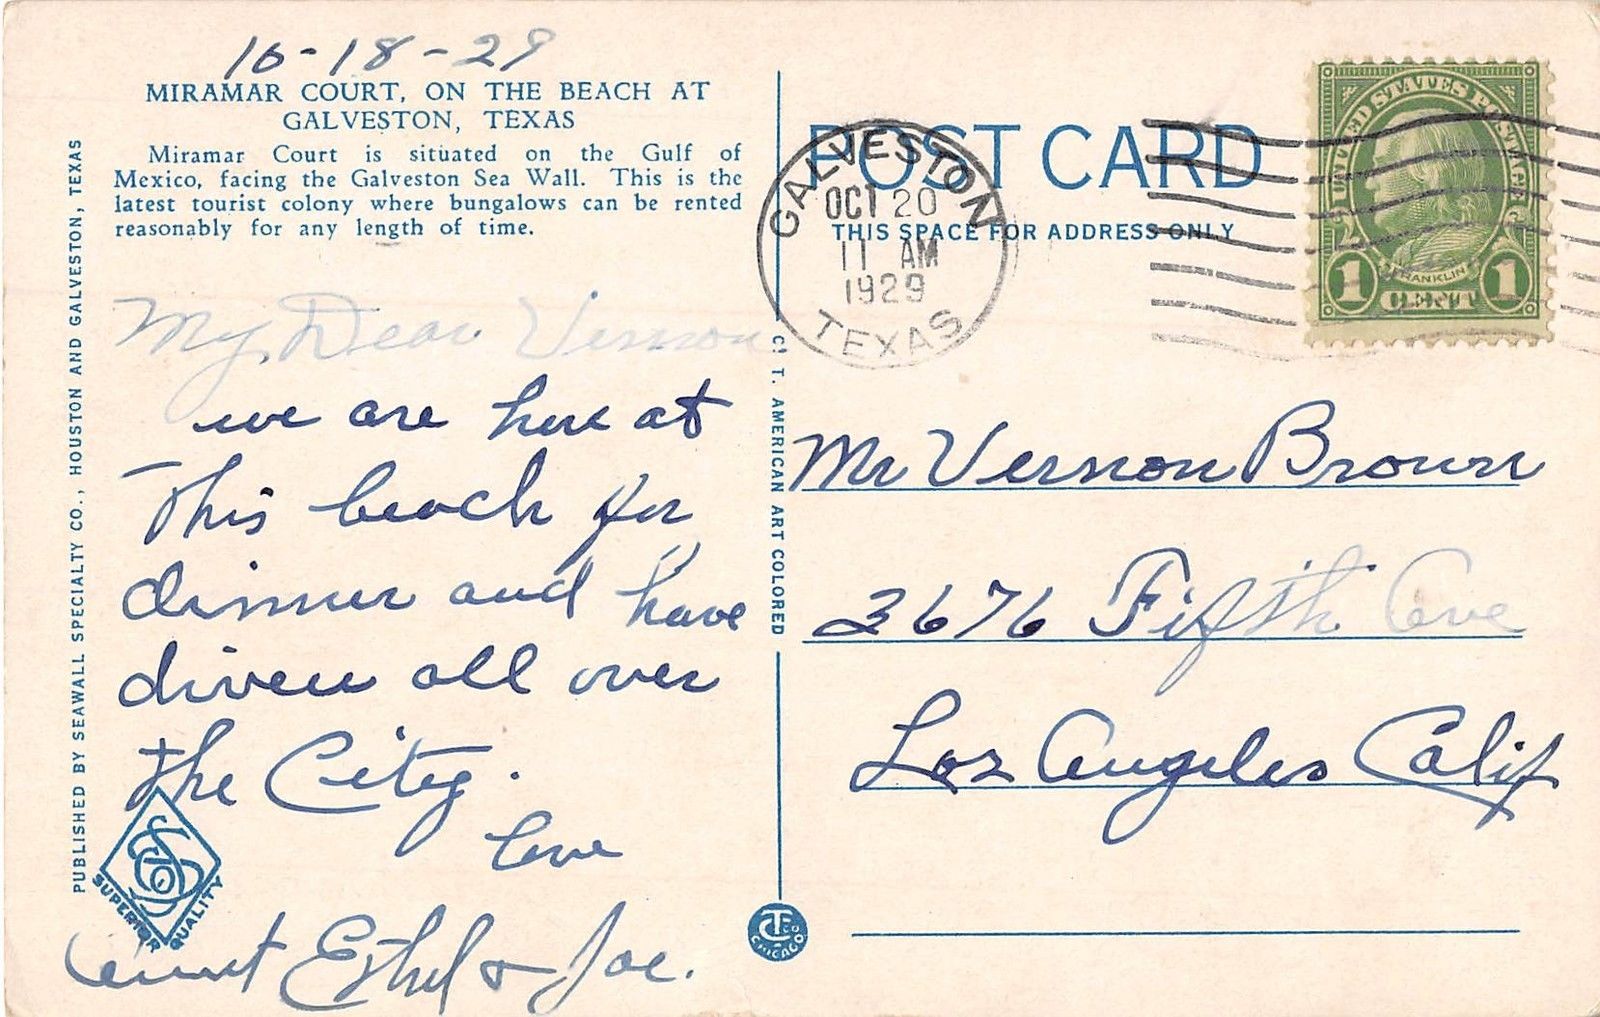 10-18-29
MIRAMAR COURT, ON THE BEACH AT
GALVESTON, TEXAS
Miramar Court is situated on the Gulf of
Mexico, facing the Galveston Sea Wall. This is the
latest tourist colony where bungalows can be rented
reasonably for any length of time.
PUBLISHED BY SEAWALL SPECIALTY CO., HOUSTON AND GALVESTON, TEXAS
My Dear Vernon
we are here at
This beach for
dinner and have
driven all over
the City.
love
Aunt Ethel & Joe.
SUPERIOR QUALITY
C. T. AMERICAN ART COLORED
CT CO CHICAGO
POST CARD
THIS SPACE FOR ADDRESS ONLY
GALVESTON
OCT 20
11 AM
1929
TEXAS
UNITED STATES POSTAGE
FRANKLIN
1 CENT 1
Mr Vernon Brown
3676 Fifth Ave
Los Angeles Calif